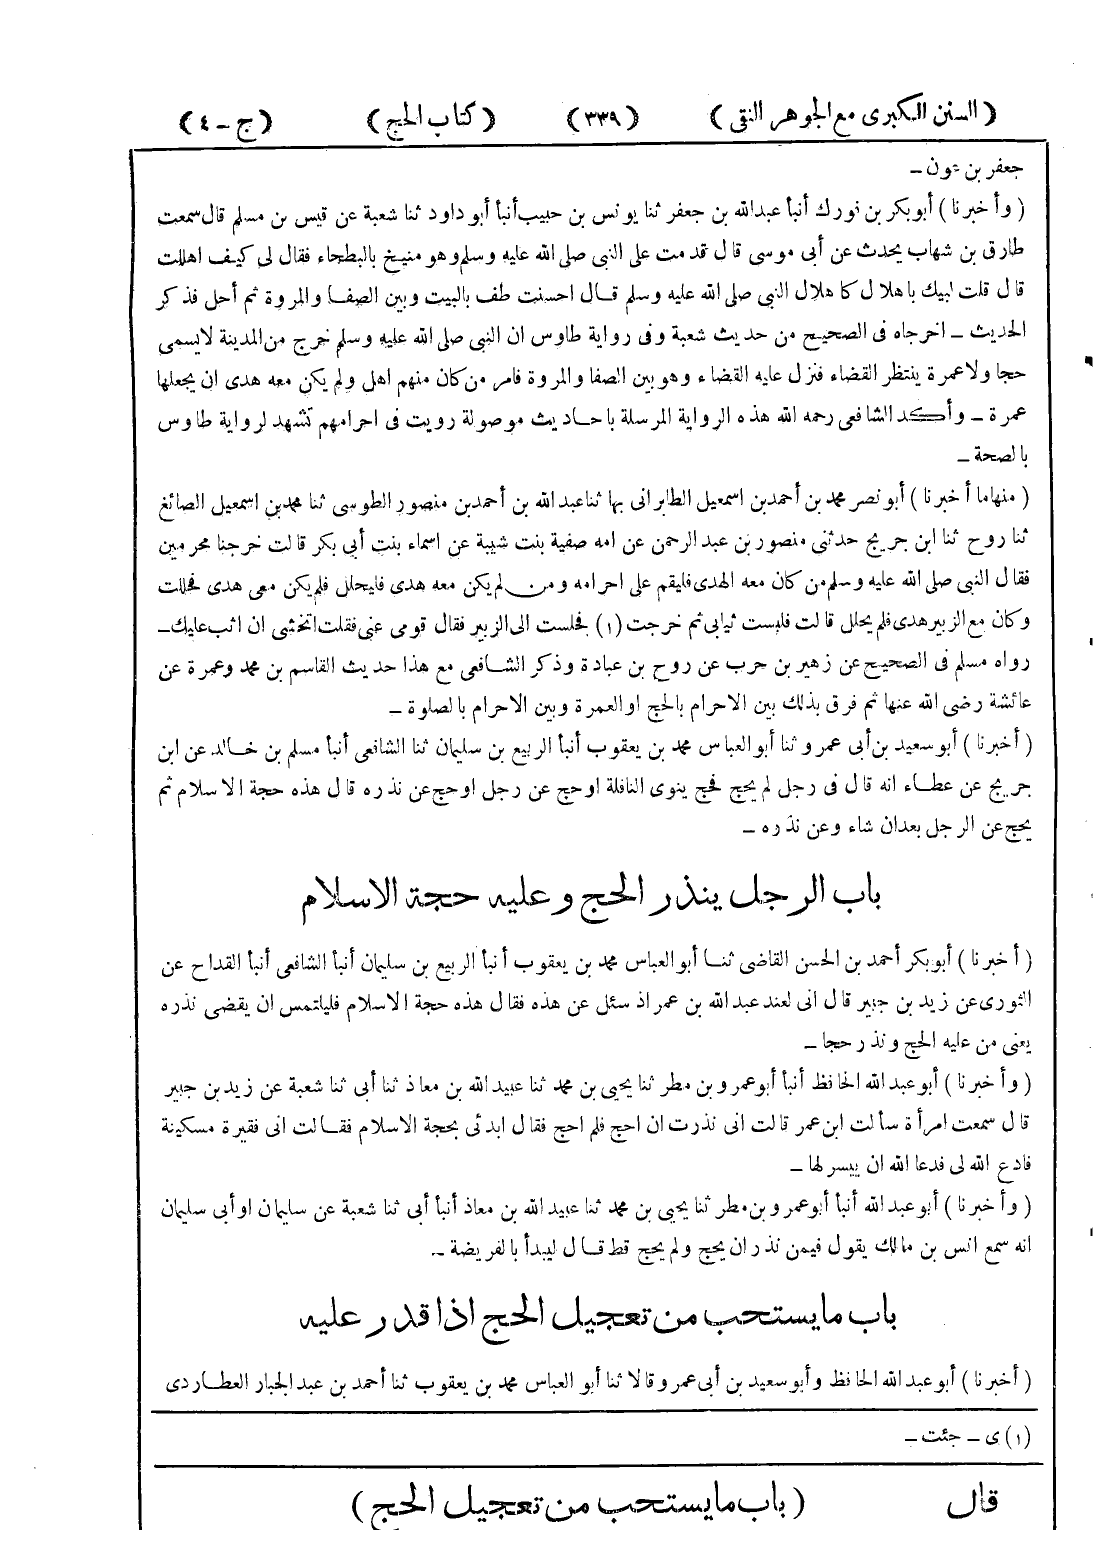 (السنن الكبرى مع الجوهر النقى) (٣٣٩) (كتاب الحج) (ج ـ ٤)
جعفر بن عون ـ
(وأخبرنا) أبوبكر بن فورك أنبأ عبدالله بن جعفر ثنا يونس بن حبيب أنبأ أبو داود ثنا شعبة عن قيس بن مسلم قال سمعت
طارق بن شهاب يحدث عن أبى موسى قال قدمت على النبى صلى الله عليه وسلم وهو منيخ بالبطحاء فقال لى كيف اهللت
قال قلت لبيك باهلال كاهلال النبى صلى الله عليه وسلم قال احسنت طف بالبيت وبين الصفا والمروة ثم أحل فذكر
الحديث ـ اخرجاه فى الصحيح من حديث شعبة وفى رواية طاوس ان النبى صلى الله عليه وسلم خرج من المدينة لايسمى
حجا ولاعمرة ينتظر القضاء فنزل عليه القضاء وهو بين الصفا والمروة فامر من كان منهم اهل ولم يكن معه هدى ان يجعلها
عمرة ـ وأكد الشافعى رحمه الله هذه الرواية المرسلة باحاديث موصولة رويت فى احرامهم تشهد لرواية طاوس
بالصحة ـ
(منهاما أخبرنا) أبونصر محمد بن أحمدبن اسمعيل الطابرانى بها ثنا عبدالله بن أحمدبن منصور الطوسى ثنا محمدبن اسمعيل الصائغ
ثنا روح ثنا ابن جريج حدثنى منصور بن عبد الرحمن عن امه صفية بنت شيبة عن اسماء بنت أبى بكر قالت خرجنا محرمين
فقال النبى صلى الله عليه وسلم من كان معه الهدى فليقم على احرامه ومن لم يكن معه هدى فليحلل فلم يكن معى هدى فحللت
وكان مع الزبير هدى فلم يحلل قالت فلبست ثيابى ثم خرجت (١) فجلست الى الزبير فقال قومى عنى فقلت اتخشى ان اثب عليك ـ
رواه مسلم فى الصحيح عن زهير بن حرب عن روح بن عبادة وذكر الشافعى مع هذا حديث القاسم بن محمد وعمرة عن
عائشة رضى الله عنها ثم فرق بذلك بين الاحرام بالحج اوالعمرة وبين الاحرام بالصلوة ـ
(أخبرنا) أبوسعيد بن أبى عمرو ثنا أبوالعباس محمد بن يعقوب أنبأ الربيع بن سليمان ثنا الشافعى أنبأ مسلم بن خالد عن ابن
جريج عن عطاء انه قال فى رجل لم يحج فحج ينوى النافلة اوحج عن رجل اوحج عن نذره قال هذه حجة الاسلام ثم
يحج عن الرجل بعدان شاء وعن نذره ـ
باب الرجل ينذر الحج وعليه حجة الاسلام
(أخبرنا) أبوبكر أحمد بن الحسن القاضى ثنا أبوالعباس محمد بن يعقوب أنبأ الربيع بن سليمان أنبأ الشافعى أنبأ القداح عن
الثورى عن زيد بن جبير قال انى لعند عبدالله بن عمر اذ سئل عن هذه فقال هذه حجة الاسلام فليلتمس ان يقضى نذره
يعنى من عليه الحج ونذر حجا ـ
(وأخبرنا) أبوعبدالله الحافظ أنبأ أبوعمرو بن مطر ثنا يحيى بن محمد ثنا عبيدالله بن معاذ ثنا أبى ثنا شعبة عن زيد بن جبير
قال سمعت امرأة سألت ابن عمر قالت انى نذرت ان احج فلم احج فقال ابدئى بحجة الاسلام فقالت انى فقيرة مسكينة
فادع الله لى فدعا الله ان ييسر لها ـ
(وأخبرنا) أبوعبدالله أنبأ أبوعمرو بن مطر ثنا يحيى بن محمد ثنا عبيدالله بن معاذ أنبأ أبى ثنا شعبة عن سليمان اوأبى سليمان
انه سمع انس بن مالك يقول فيمن نذر ان يحج ولم يحج قط قال ليبدأ بالفريضة ـ
باب مايستحب من تعجيل الحج اذا قدر عليه
(أخبرنا) أبوعبدالله الحافظ وأبوسعيد بن أبى عمرو قالا ثنا أبو العباس محمد بن يعقوب ثنا أحمد بن عبدالجبار العطاردى
(١) ى ـ جئت ـ
قال (باب مايستحب من تعجيل الحج)